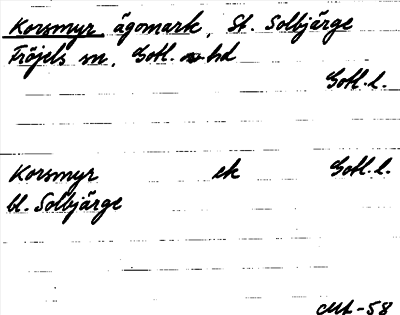 Korsmyr ägomark, St. Solbjärge
Fröjels sn, Gotl. sv hd
Gotl. l.
Korsmyr ek Gotl. l.
bl. Solbjärge
-58